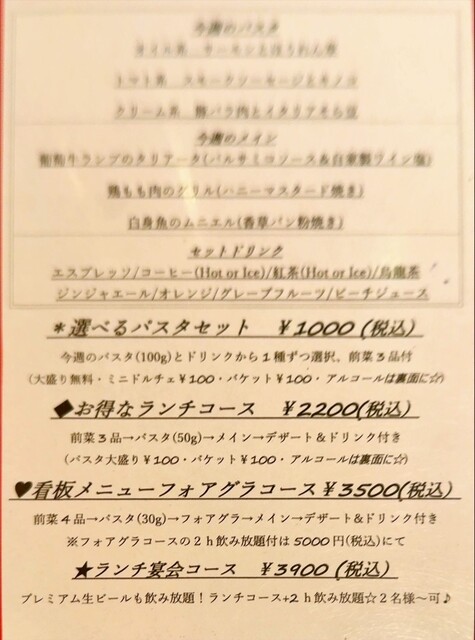 今週のパスタ
オイル系 サーモンとほうれん草
トマト系 スモークソーセージとキノコ
クリーム系 豚バラ肉とイタリアそら豆
今週のメイン
葡萄牛ランプのタリアータ(バルサミコソース&自家製ワイン塩)
鶏もも肉のグリル(ハニーマスタード焼き)
白身魚のムニエル(香草パン粉焼き)
セットドリンク
エスプレッソ/コーヒー(Hot or Ice)/紅茶(Hot or Ice)/烏龍茶
ジンジャエール/オレンジ/グレープフルーツ/ピーチジュース
*選べるパスタセット ¥1000(税込)
今週のパスタ(100g)とドリンクから1種ずつ選択。前菜3品付
(大盛り無料・ミニドルチェ¥100・バケット¥100・アルコールは裏面に☆)
◆お得なランチコース ¥2200(税込)
前菜3品→パスタ(50g)→メイン→デザート&ドリンク付き
(パスタ大盛り¥100・バケット¥100・アルコールは裏面に☆)
♥看板メニューフォアグラコース¥3500(税込)
前菜4品→パスタ(30g)→フォアグラ→メイン→デザート&ドリンク付き
※フォアグラコースの2h飲み放題付は5000円(税込)にて
★ランチ宴会コース ¥3900(税込)
プレミアム生ビールも飲み放題!ランチコース+2h飲放題☆2名様~可♪